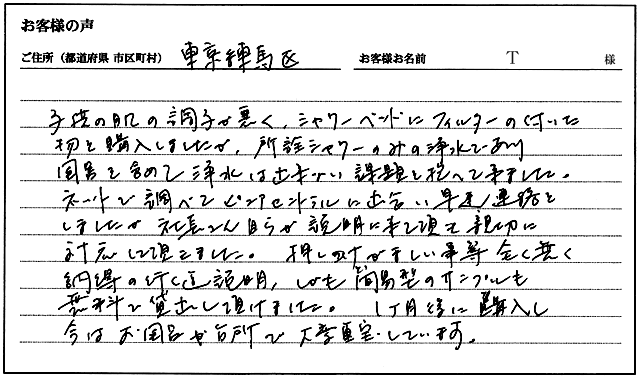 お客様の声
ご住所（都道府県 市区町村） 東京練馬区 お客様お名前 T 様
子供の肌の調子が悪く、シャワーヘッドにフィルターの付いた
物を購入しましたが、所詮シャワーのみの浄水であり
図呂を含めて浄水は出来ない課題を抱えて来ました。
ネットで調べて に出会い早速連絡を
しましたが社長さん自らが説明に来て頂き親切に
対応して頂きました。押し付けがましい事等全く無く
納得の行く迄説明、しかも簡易型のサンプルも
無料で貸出して頂けました。1ヶ月後に購入し
今はお図呂や台所で大変重宝しています。